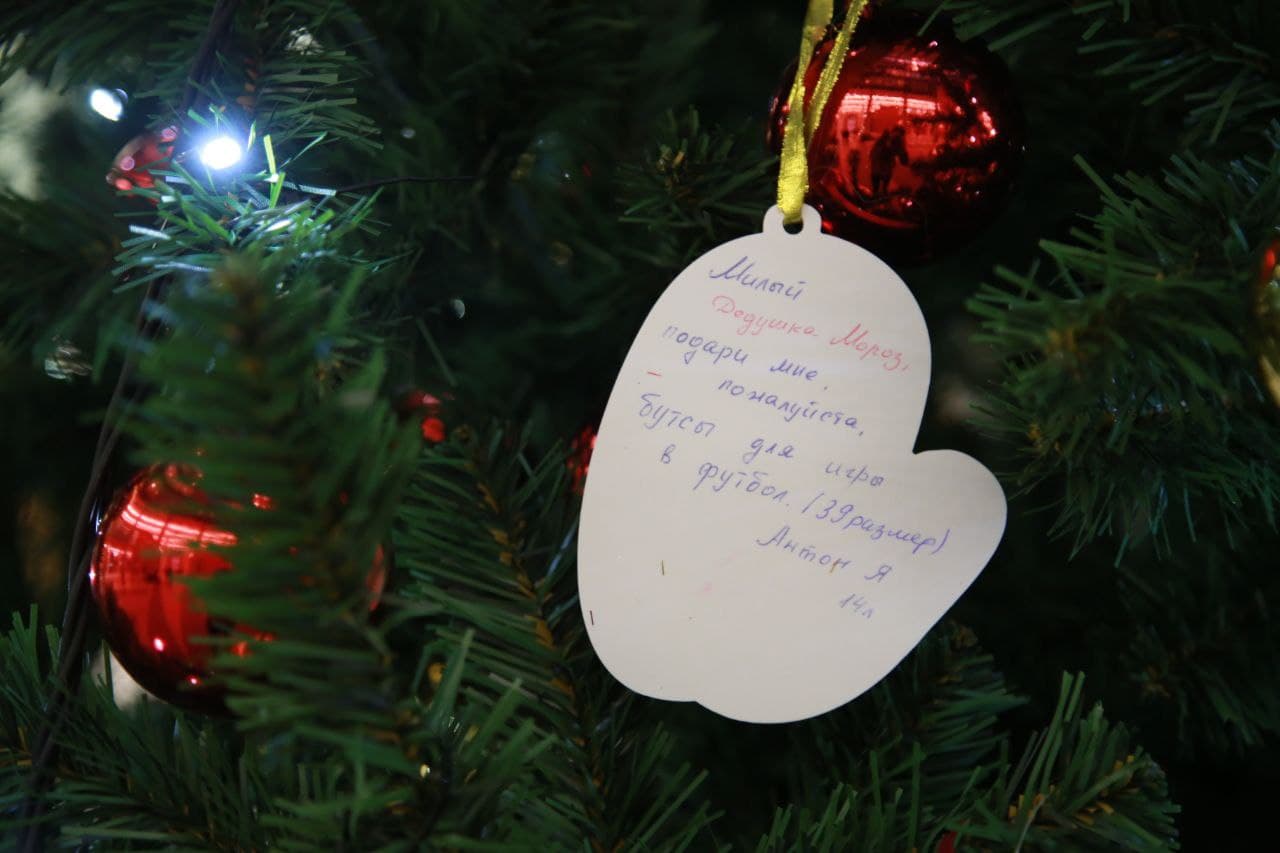 Милый
Дедушка Мороз,
подари мне,
пожалуйста,
бутсы для игры
в футбол. (39размер)
Антон Я
14л